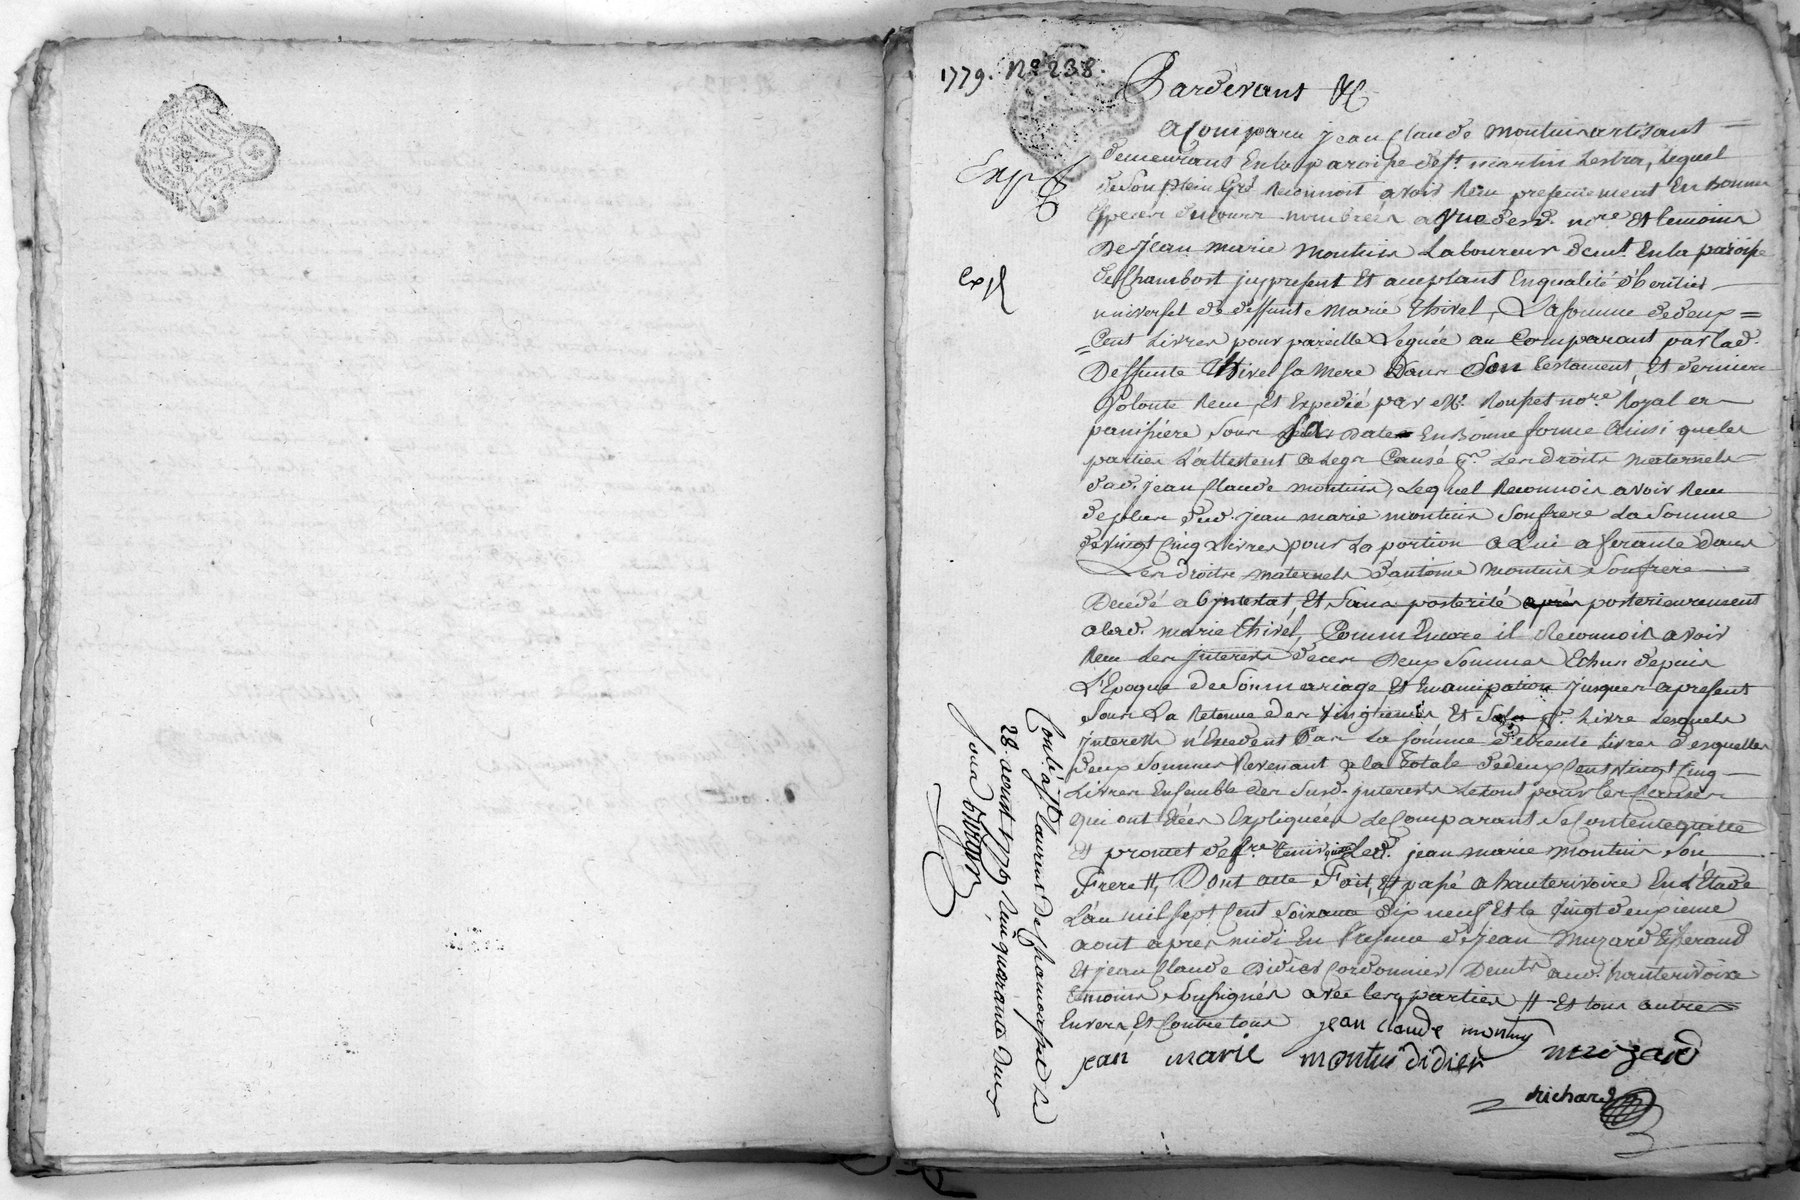 1779. N° 238.
Pardevant &c
a Comparu jean Claude Montuis artisant
demeurans En la paroisse de st. martin Lestra, Lequel
de Son plein Gré Reconnoit avoir Recu presentement En Bonnes
Especes de Cours nombrées a vue desd. nore. Et temoins
De jean marie Montuis Laboureur demt. En la paroisse
de Chambost jy present Et acceptant En qualité d'heritier
universel de deffunte Marie thivel, La somme de deux =
= Cent Livres pour pareille Leguée au Comparant par lad.
Deffunte thivel sa Mere Dans Son testament, Et derniere
Volonté Recu, Et Expedié par Me. Rousset nore. Royal a
panissiere Sous sa Date En Bonne forme Ainsi que les
parties L'attestent Ce Legs Causé pr. Les droits maternels
dud. jean Claude montuis, Lequel Reconnois avoir Recu
de plus dud. jean marie montuis Son frere La Somme
de vingt Cinq Livres pour La portion a Lui aferante Dans
Les droits maternels d'antoine Montuis Son frere
Decedé abjntestat, Et Sans posterité après posterieurement
a lad. marie thivel, Comm'Encore il Reconnois avoir
Recu Les jnterests de ces Deux Sommes Echus depuis
L'Epoque de Son mariage Et Emancipation jusques a present
Sous La Retenue des vingtiemes, Et Sols pr. Livre Lesquels
jnterests n'Excedent Pas La somme de trente Livres desquelles
deux Sommes Revenant a la totale de deux Cent vingt Cinq
Livres Ensemble des Susd. jnterests Le tout pour les Causes
qui ont Etées Expliquées Le Comparant Se Contente quitte
Et promet de fre. tenir quitte Led. jean marie Montuis Son
Frere #, Dont acte Fait, Et passé a hauterivoire En L'Etude
L'an mil sept Cent Soixante dix neuf Et le vingt deuxieme
aout après midi En Presence de jean Muzard tisserand
Et jean Claude Didier Cordonnier Demts. aud. hauterivoire
temoins Soussignés avec les parties # Et tous autres
Envers, Et Contre tous jean claude montuis
jean marie montuis didier muzard
Richard
Exp
Exp
Contlé. a St. Laurent de Chamousset Le
28. aoust 1779 Recu quarante deux
sous